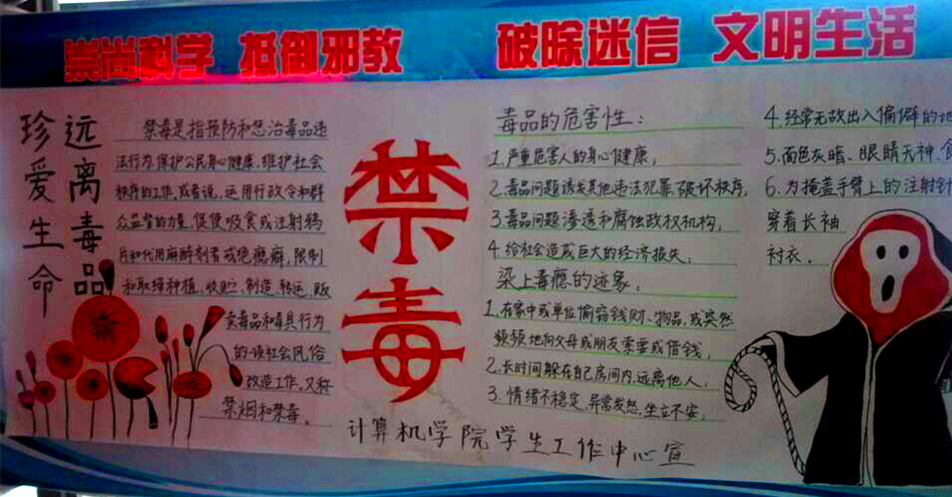 崇尚科学 抵御邪教 破除迷信 文明生活
珍爱生命
远离毒品
禁毒是指预防和惩治毒品违
法行为,保护公民身心健康,维护社会
秩序的工作,或者说,运用行政令和群
众监督的力量,促使吸食或注射鸦
片和代用麻醉剂者戒绝瘾癖,限制
和取缔种植、收贮、制造、转运、贩
卖毒品和毒具行为
的一项社会风俗
改造工作,又称
禁烟和禁毒。
禁毒
毒品的危害性:
1.严重危害人的身心健康,
2.毒品问题诱发其他违法犯罪,破坏秩序,
3.毒品问题渗透和腐蚀政权机构,
4.给社会造成巨大的经济损失,
染上毒瘾的迹象:
1.在家中或单位偷窃钱财、物品,或突然
频频地向父母或朋友索要或借钱,
2.长时间躲在自己房间内,远离他人,
3.情绪不稳定,异常发怒,坐立不安,
4.经常无故出入偏僻的地
5.面色灰暗、眼睛无神、食
6.为掩盖手臂上的注射针
穿着长袖
衬衣.
计算机学院学生工作中心宣